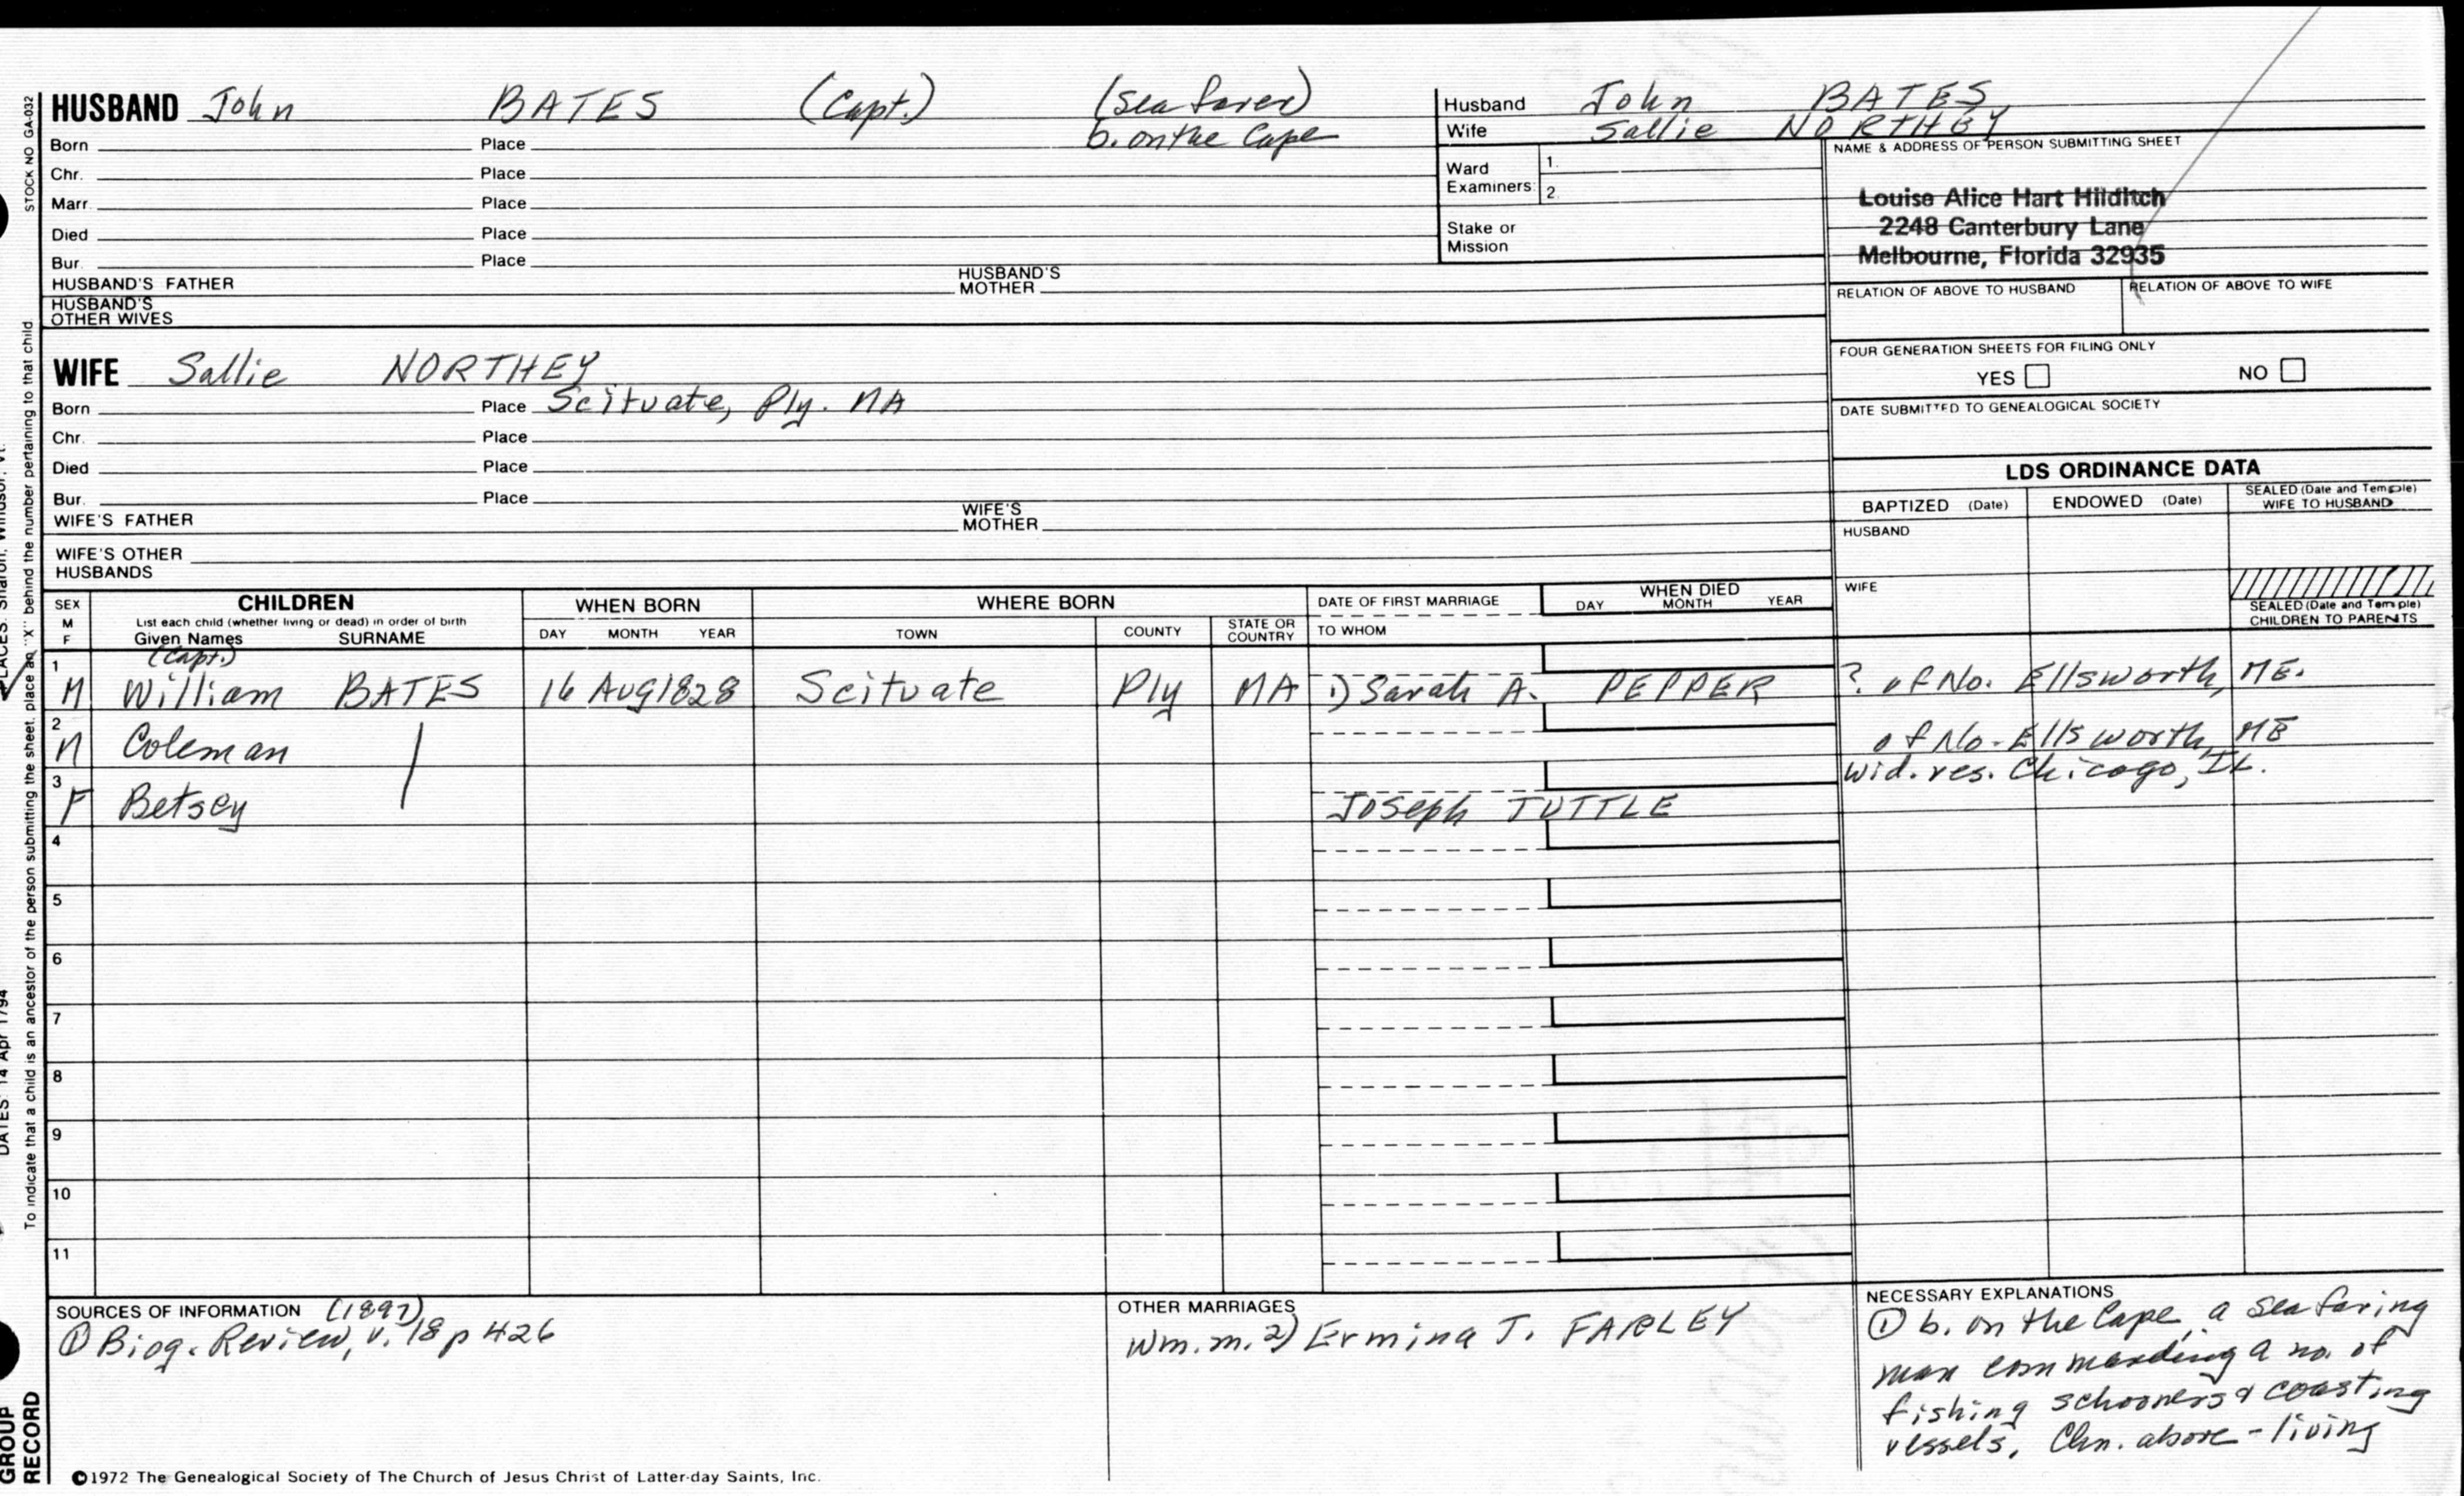 HUSBAND John BATES (Capt.) (Sea farer)
b. on the Cape
Born Place
Chr. Place
Marr. Place
Died Place
Bur. Place
HUSBAND'S FATHER HUSBAND'S MOTHER
HUSBAND'S OTHER WIVES
Husband John BATES
Wife Sallie NORTHEY
Ward Examiners: 1.
2.
Stake or Mission
NAME & ADDRESS OF PERSON SUBMITTING SHEET
Louise Alice Hart Hilditch
2248 Canterbury Lane
Melbourne, Florida 32935
RELATION OF ABOVE TO HUSBAND RELATION OF ABOVE TO WIFE
FOUR GENERATION SHEETS FOR FILING ONLY
YES NO
DATE SUBMITTED TO GENEALOGICAL SOCIETY
WIFE Sallie NORTHEY
Born Place Scituate, Ply. MA
Chr. Place
Died Place
Bur. Place
WIFE'S FATHER WIFE'S MOTHER
WIFE'S OTHER HUSBANDS
LDS ORDINANCE DATA
BAPTIZED (Date) ENDOWED (Date) SEALED (Date and Temple) WIFE TO HUSBAND
HUSBAND
WIFE
SEALED (Date and Temple) CHILDREN TO PARENTS
SEX M F
CHILDREN
List each child (whether living or dead) in order of birth
Given Names SURNAME
WHEN BORN
DAY MONTH YEAR
WHERE BORN
TOWN COUNTY STATE OR COUNTRY
DATE OF FIRST MARRIAGE
TO WHOM
WHEN DIED
DAY MONTH YEAR
(Capt.)
1 M William BATES 16 Aug 1828 Scituate Ply MA 1) Sarah A. PEPPER ? of No. Ellsworth, ME.
2 M Coleman of No. Ellsworth, ME
3 F Betsey Joseph TUTTLE wid. res. Chicago, IL.
4
5
6
7
8
9
10
11
SOURCES OF INFORMATION (1897)
① Biog. Review, v. 18 p 426
OTHER MARRIAGES
Wm. m. 2) Ermina J. FARLEY
NECESSARY EXPLANATIONS
① b. on the Cape, a sea faring
man commanding a no. of
fishing schooners & coasting
vessels. Chn. above - living
©1972 The Genealogical Society of The Church of Jesus Christ of Latter-day Saints, Inc.
STOCK NO GA-032
To indicate that a child is an ancestor of the person submitting the sheet, place an "X" behind the number pertaining to that child
DATES: 14 Apr 1794
GROUP
RECORD